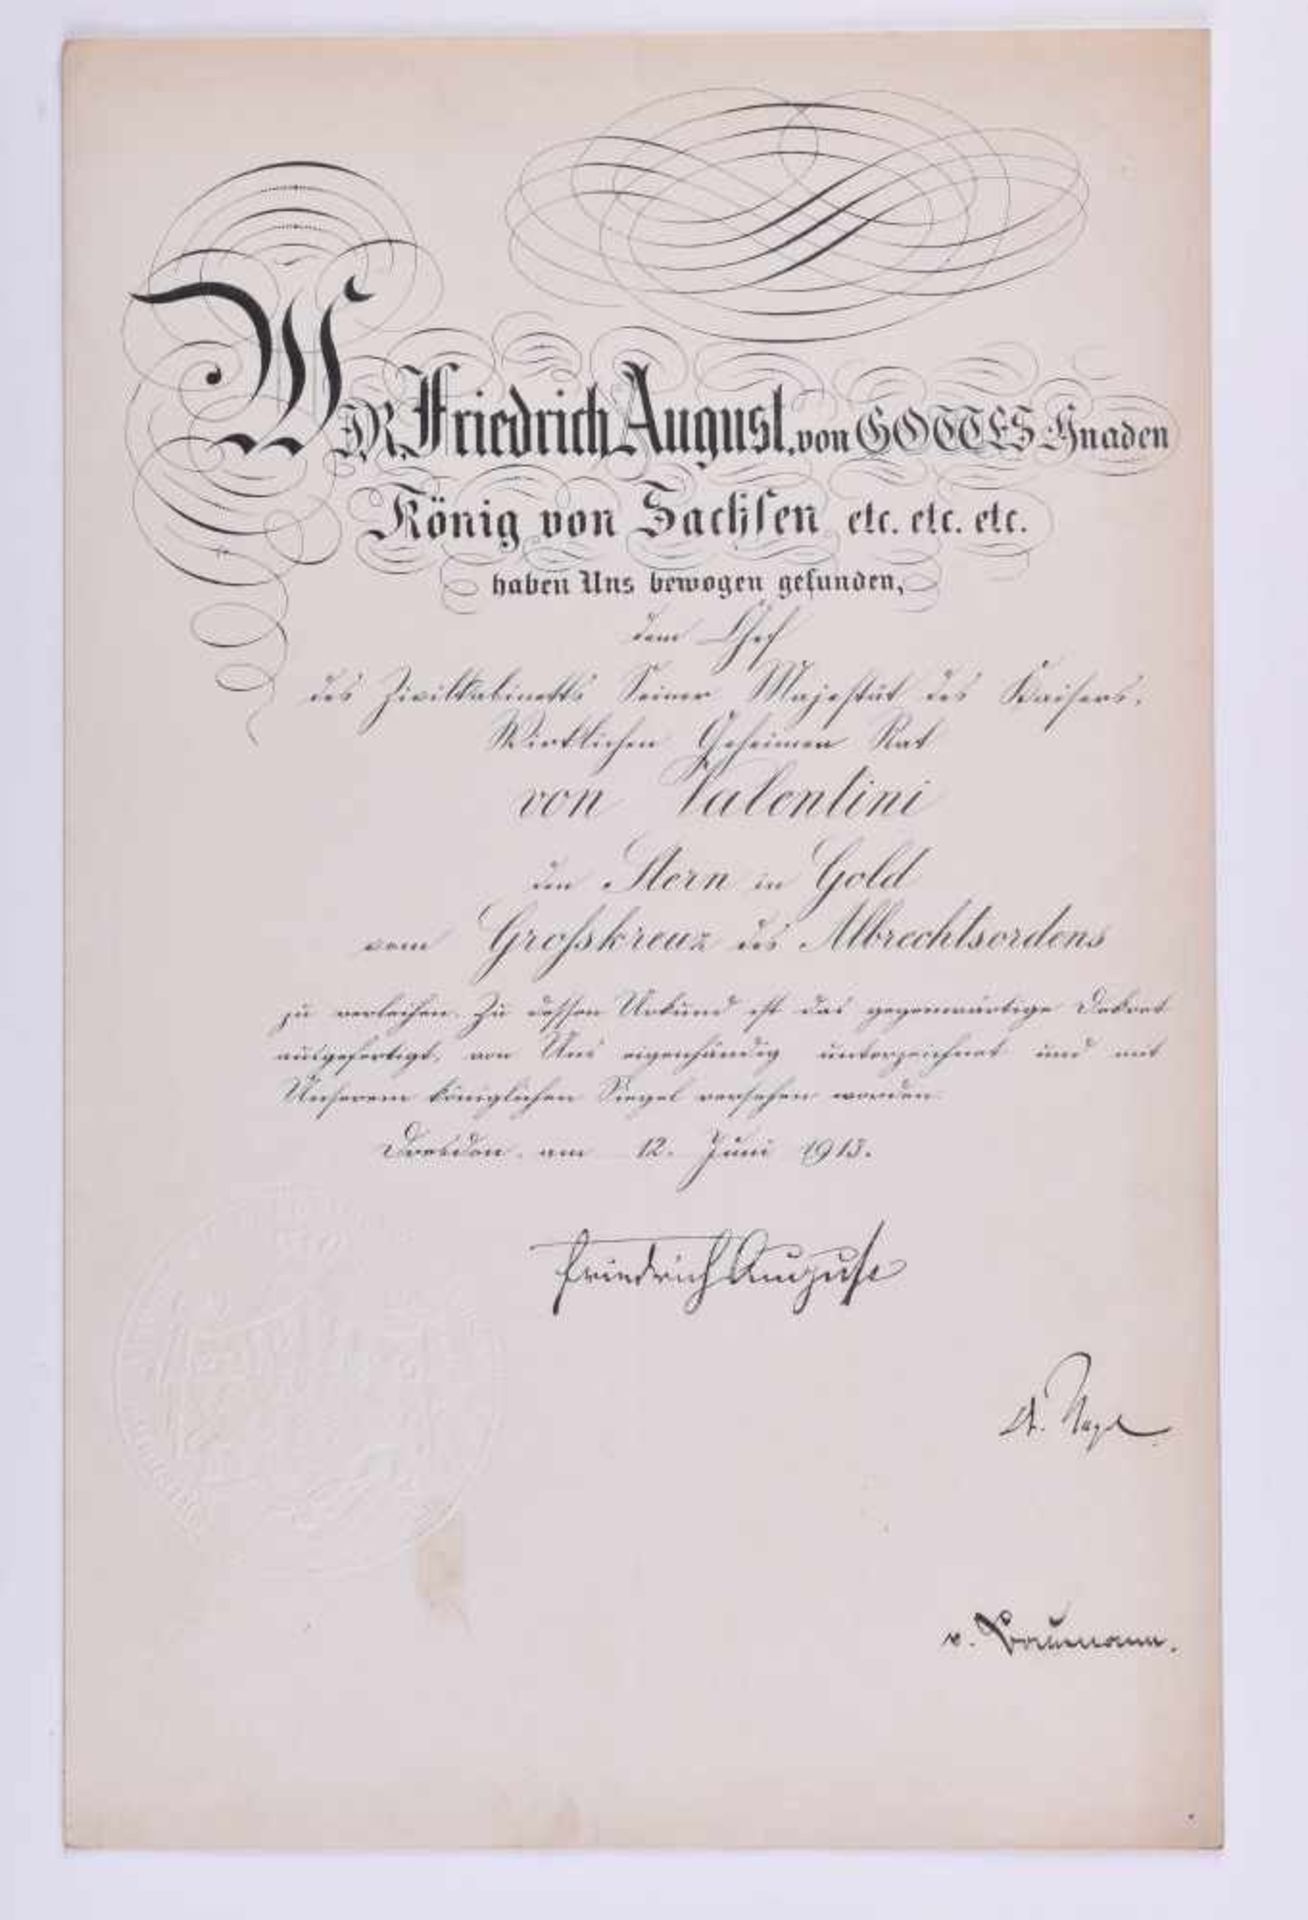 WIR, Friedrich August, von GOTTES Gnaden
König von Sachsen etc. etc. etc.
haben Uns bewogen gefunden,
dem Chef
des Zivilkabinetts Seiner Majestät des Kaisers,
Wirklichen Geheimen Rat
von Valentini
den Stern in Gold
vom Großkreuz des Albrechtsordens
zu verleihen. Zu dessen Urkund ist das gegenwärtige Dekret
ausgefertigt, von Uns eigenhändig unterzeichnet und mit
Unserem königlichen Siegel versehen worden.
Dresden, am 12. Juni 1913.
Friedrich August
v. Baumann.